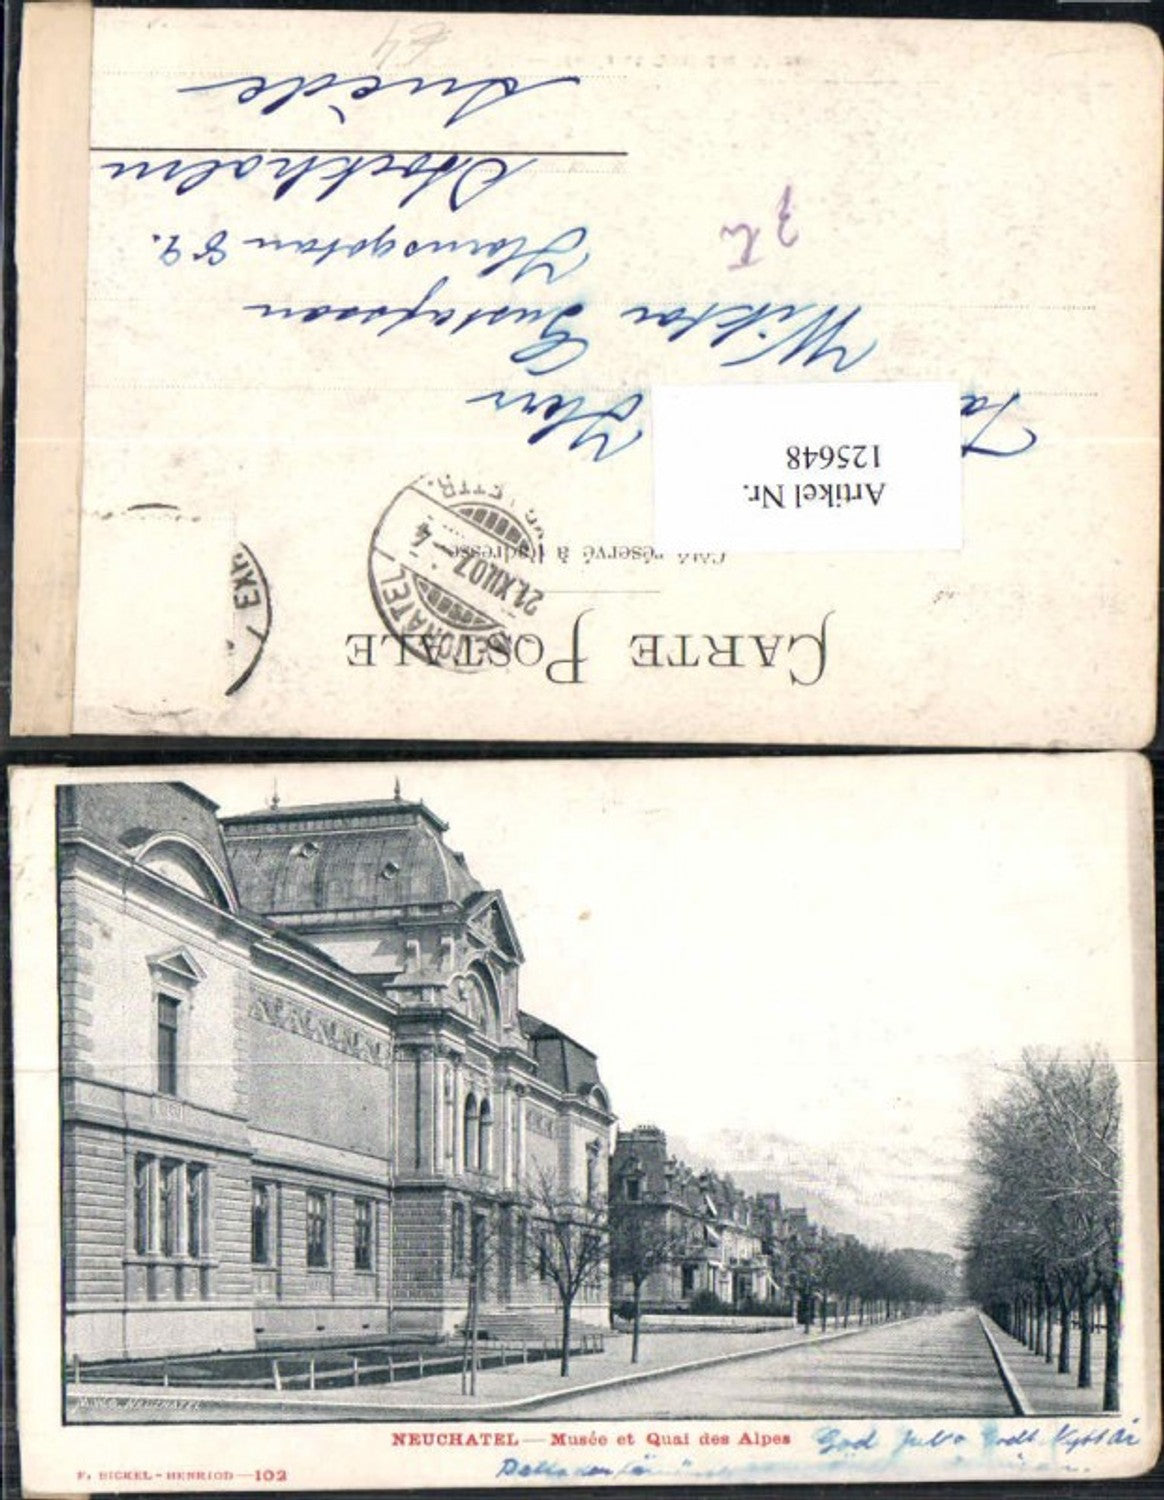 CARTE POSTALE
Côté réservé à l'adresse
NEUCHATEL
21.XII.07.-4
LETTR.
EXP
Artikel Nr.
125648
Herr
Wiktor Gustafsson
Hornsgatan 82.
Stockholm
Suède
NEUCHATEL — Musée et Quai des Alpes
God Jul o Godt Nytt år
F. BICKEL-HENRIOD — 102